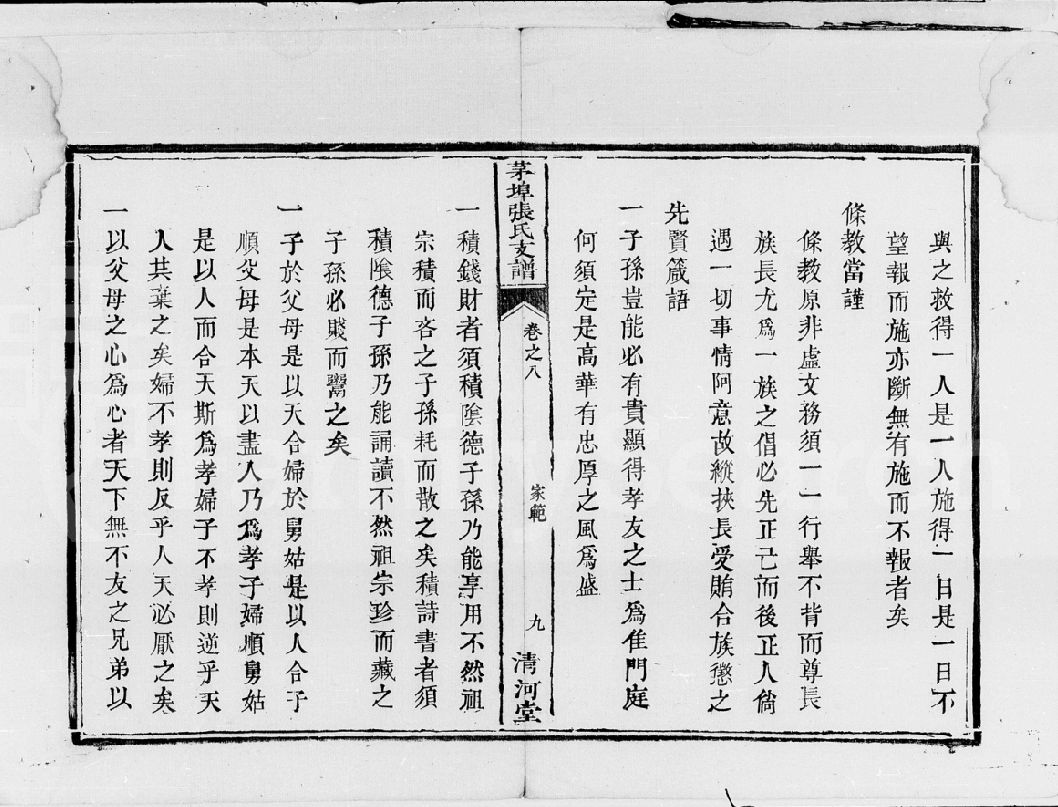 與之救得一人是一人施得一日是一日不
望報而施亦斷無有施而不報者矣
條教當謹
條教原非虛文務須一一行舉不背而尊長
族長尤爲一族之倡必先正己而後正人倘
遇一切事情阿意故縱挾長受賄合族懲之
先賢箴語
一子孫豈能必有貴顯得孝友之士爲佳門庭
何須定是高華有忠厚之風爲盛
茅埠張氏支譜
卷之八
家範
九
清河堂
一積錢財者須積陰德子孫乃能享用不然祖
宗積而吝之子孫耗而散之矣積詩書者須
積陰德子孫乃能誦讀不然祖宗珍而藏之
子孫必賤而鬻之矣
一子於父母是以天合婦於舅姑是以人合子
順父母是本天以盡人乃爲孝子婦順舅姑
是以人而合天斯爲孝婦子不孝則逆乎天
人共棄之矣婦不孝則反乎人天必厭之矣
一以父母之心爲心者天下無不友之兄弟以